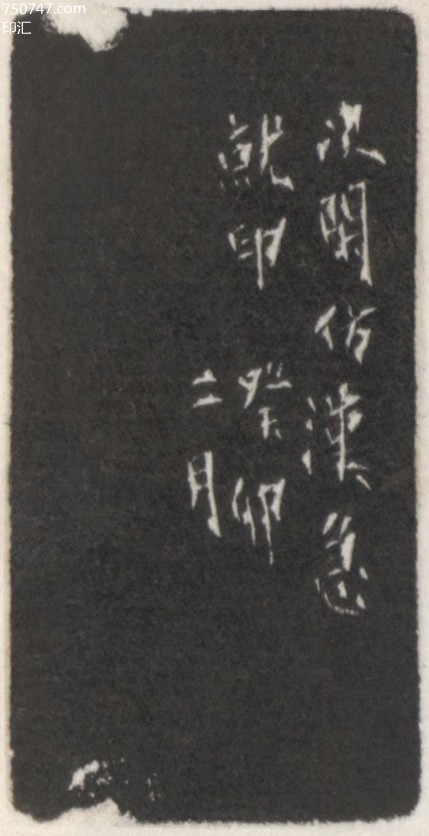 750747.com
印汇
次閑仿漢急
就印 癸卯
二月